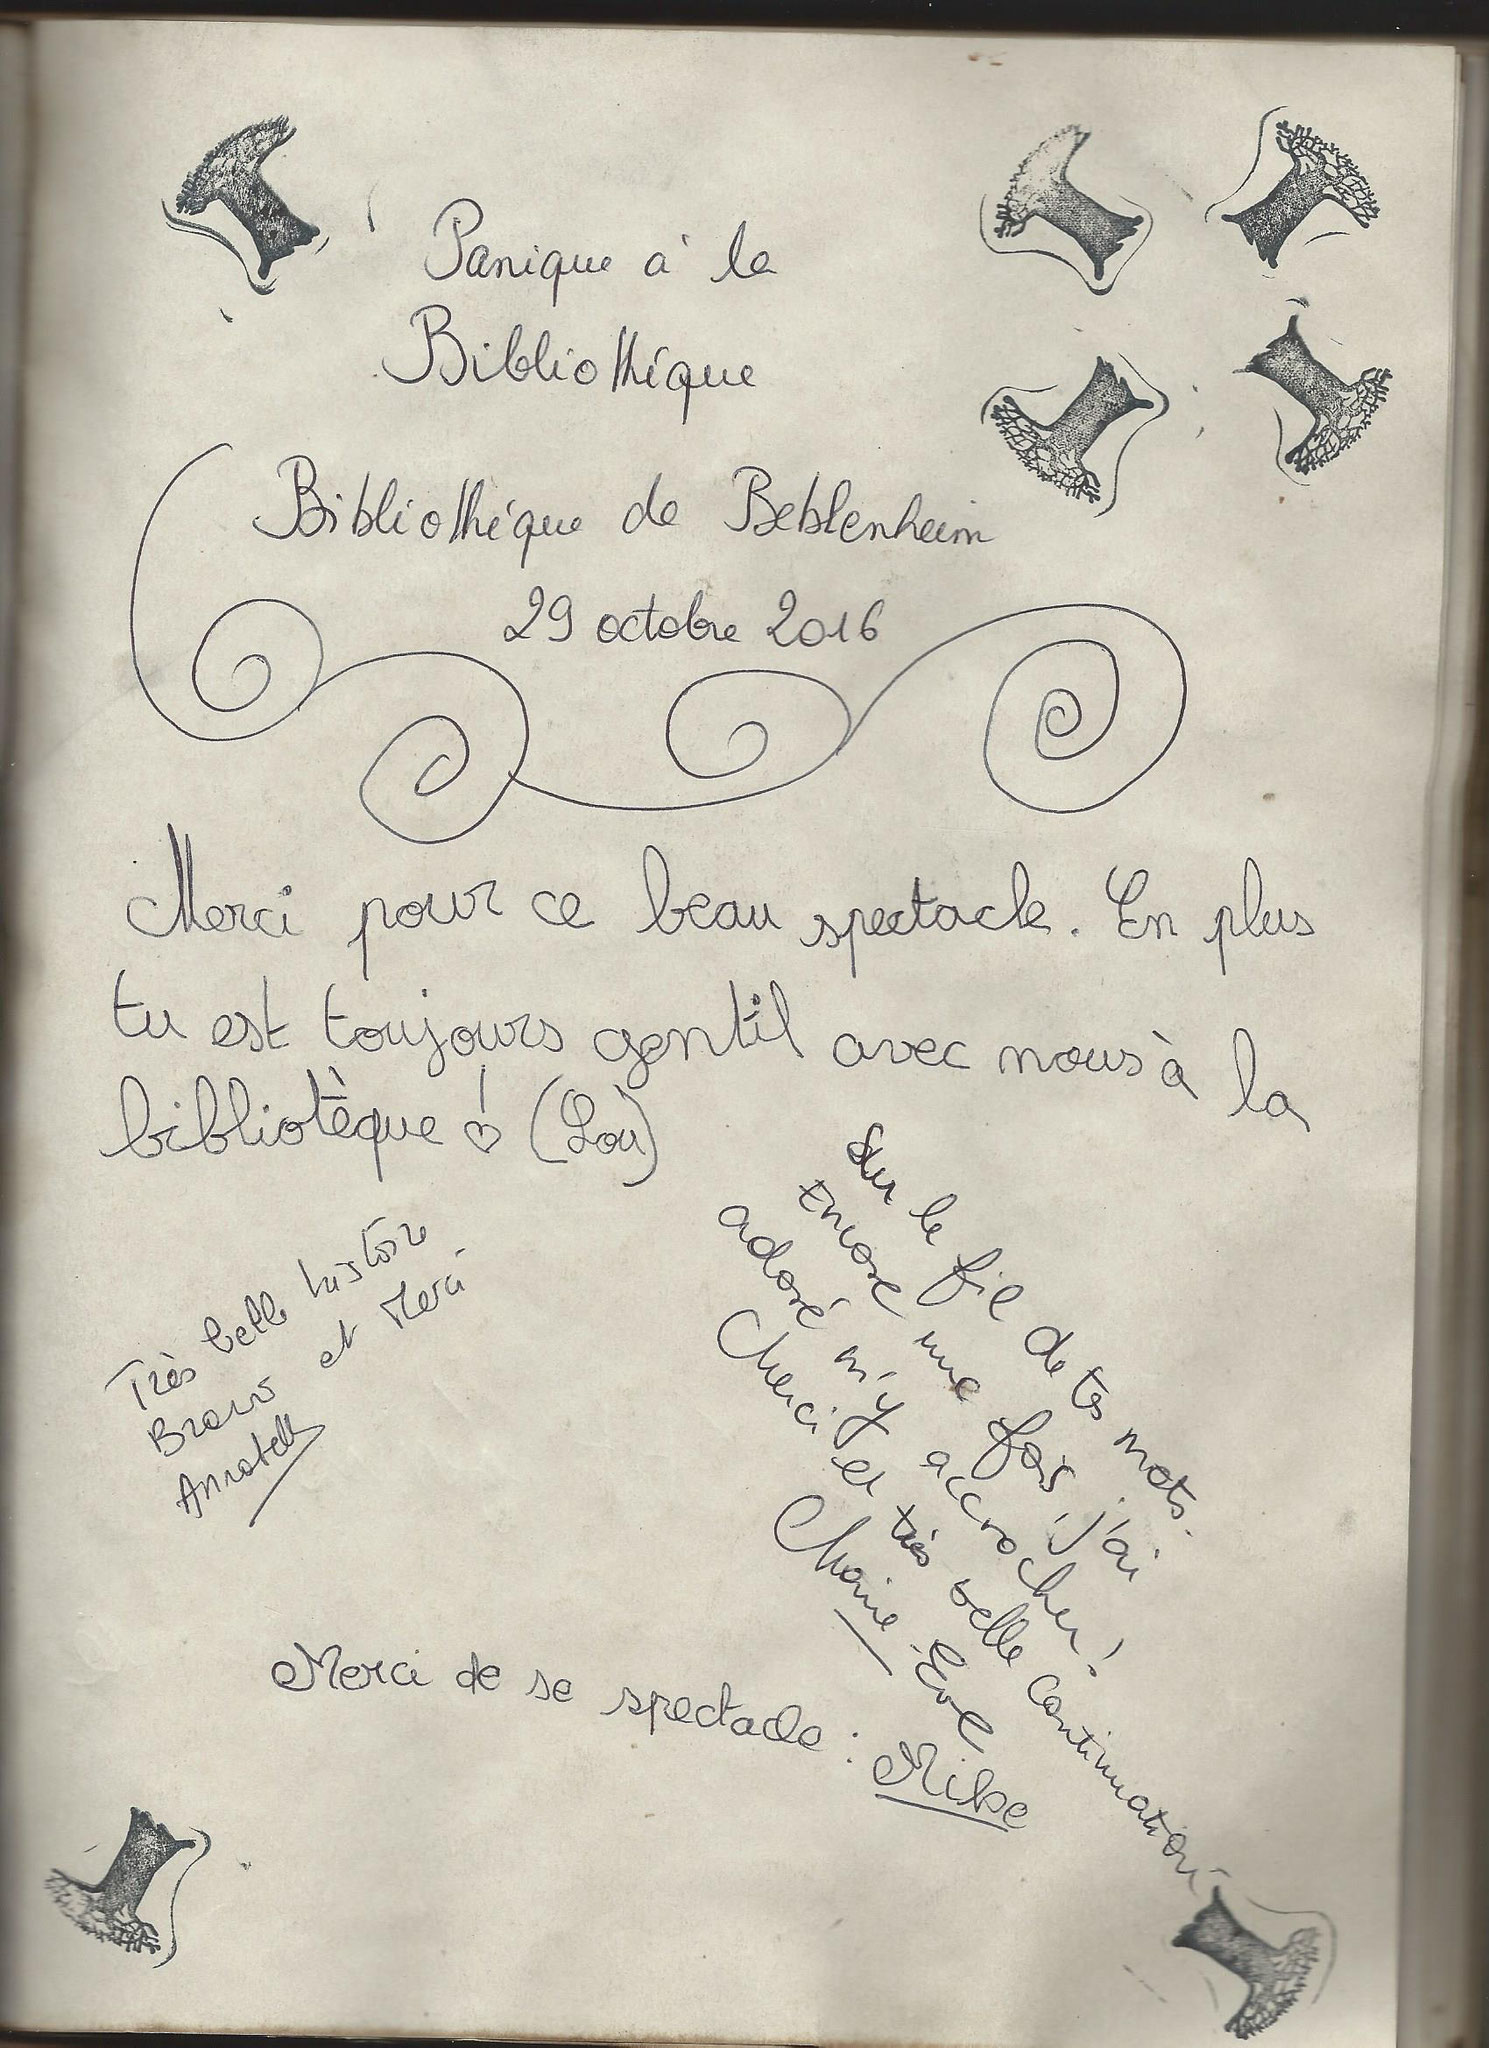 Panique à la
Bibliothéque
Bibliothéque de Beblenheim
29 octobre 2016
Merci pour ce beau spectacle. En plus
tu est toujours gentil avec nous à la
bibliotèque ! ♡ (Lou)
Très belle histoire
Bravo et Merci
Sur le fil de tes mots.
Encore une fois, j'ai
adoré m'y accrocher !
Merci et très belle continuation
Eve
Merci de se spectacle : Mike